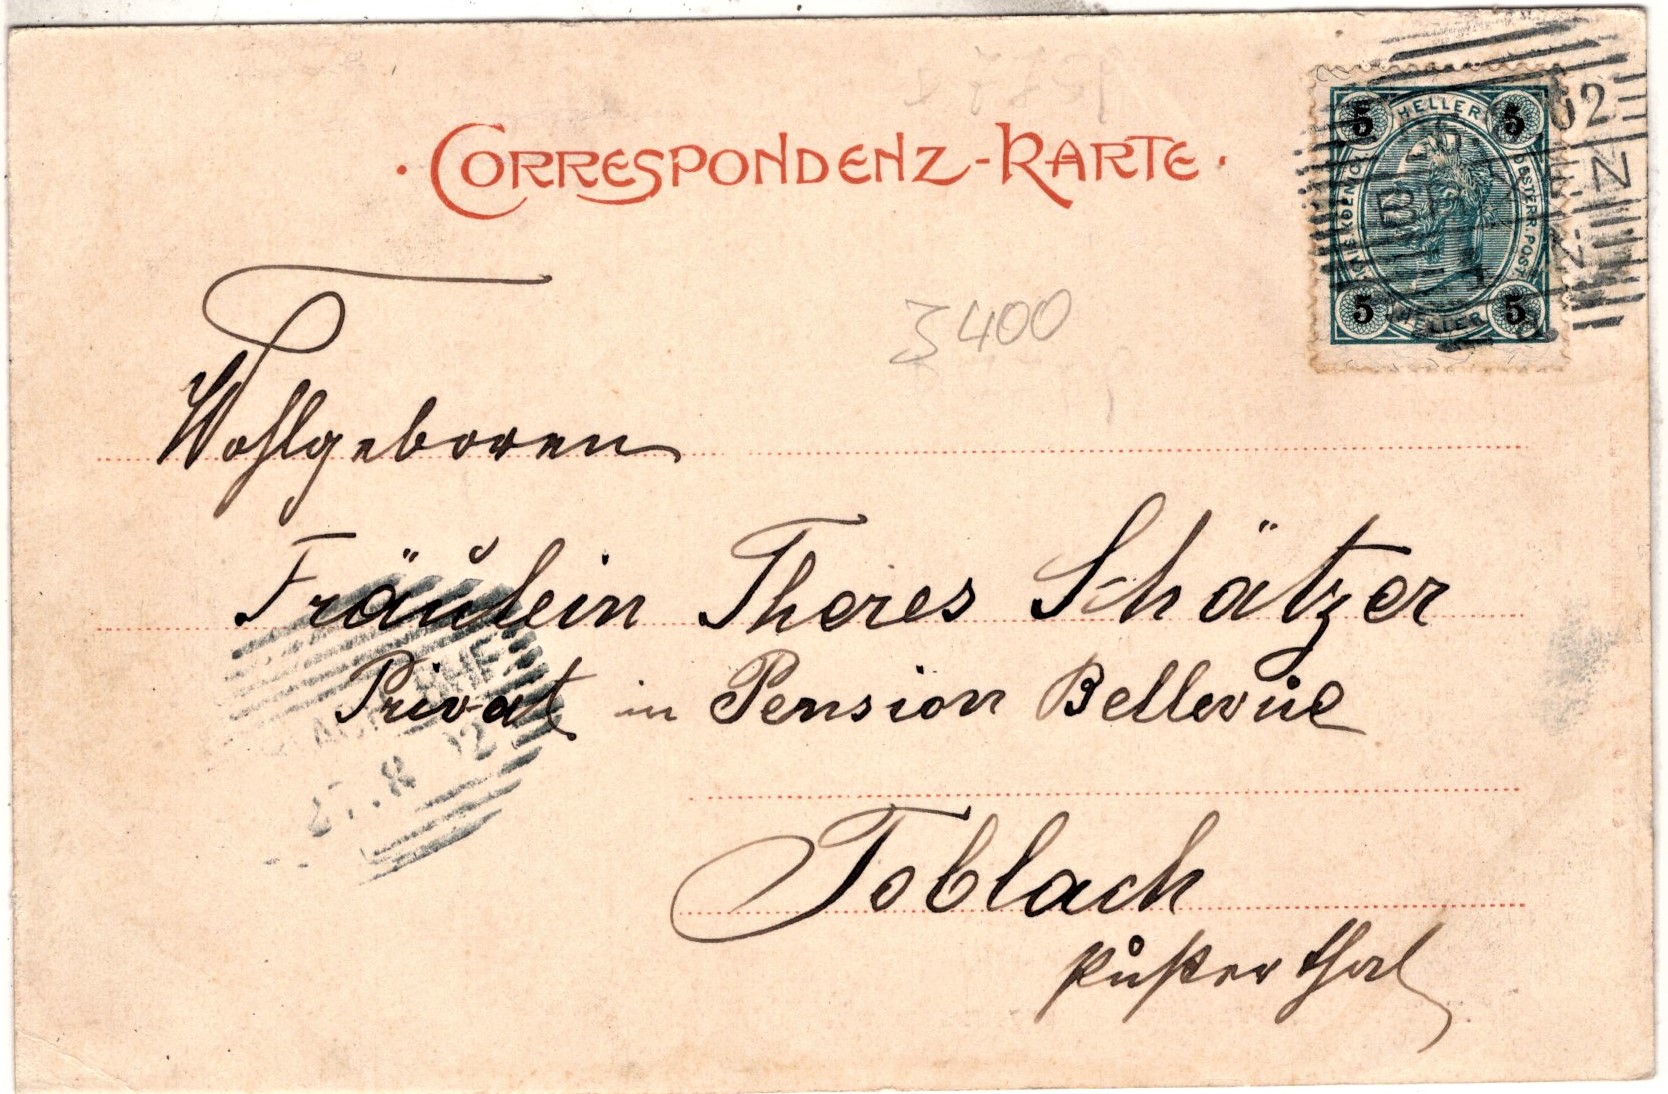 · CORRESPONDENZ-KARTE ·
5 HELLER 5
OESTERR. POST.
5 HELLER 5
02
3400
Wohlgeboren
Fräulein Theres Schätzer
Privat in Pension Bellevüe
27.8 02
Toblach
Pußterthal